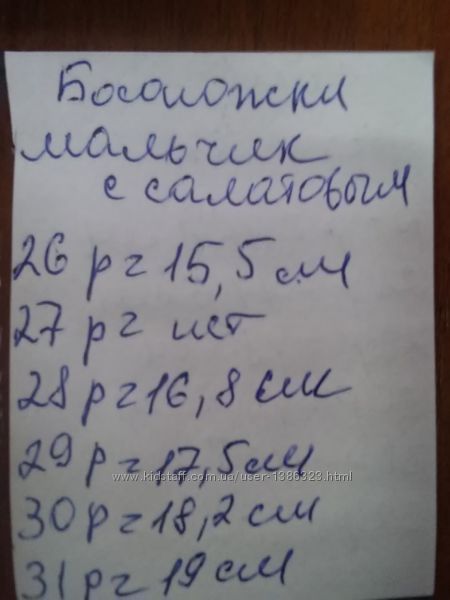 Босоложки
мальчик
с салатовым
26 р = 15,5 см
27 р = нет
28 р = 16,8 см
29 р = 17,5 см
www.kidstaff.com.ua/user-1386323.html
30 р = 18,2 см
31 р = 19 см